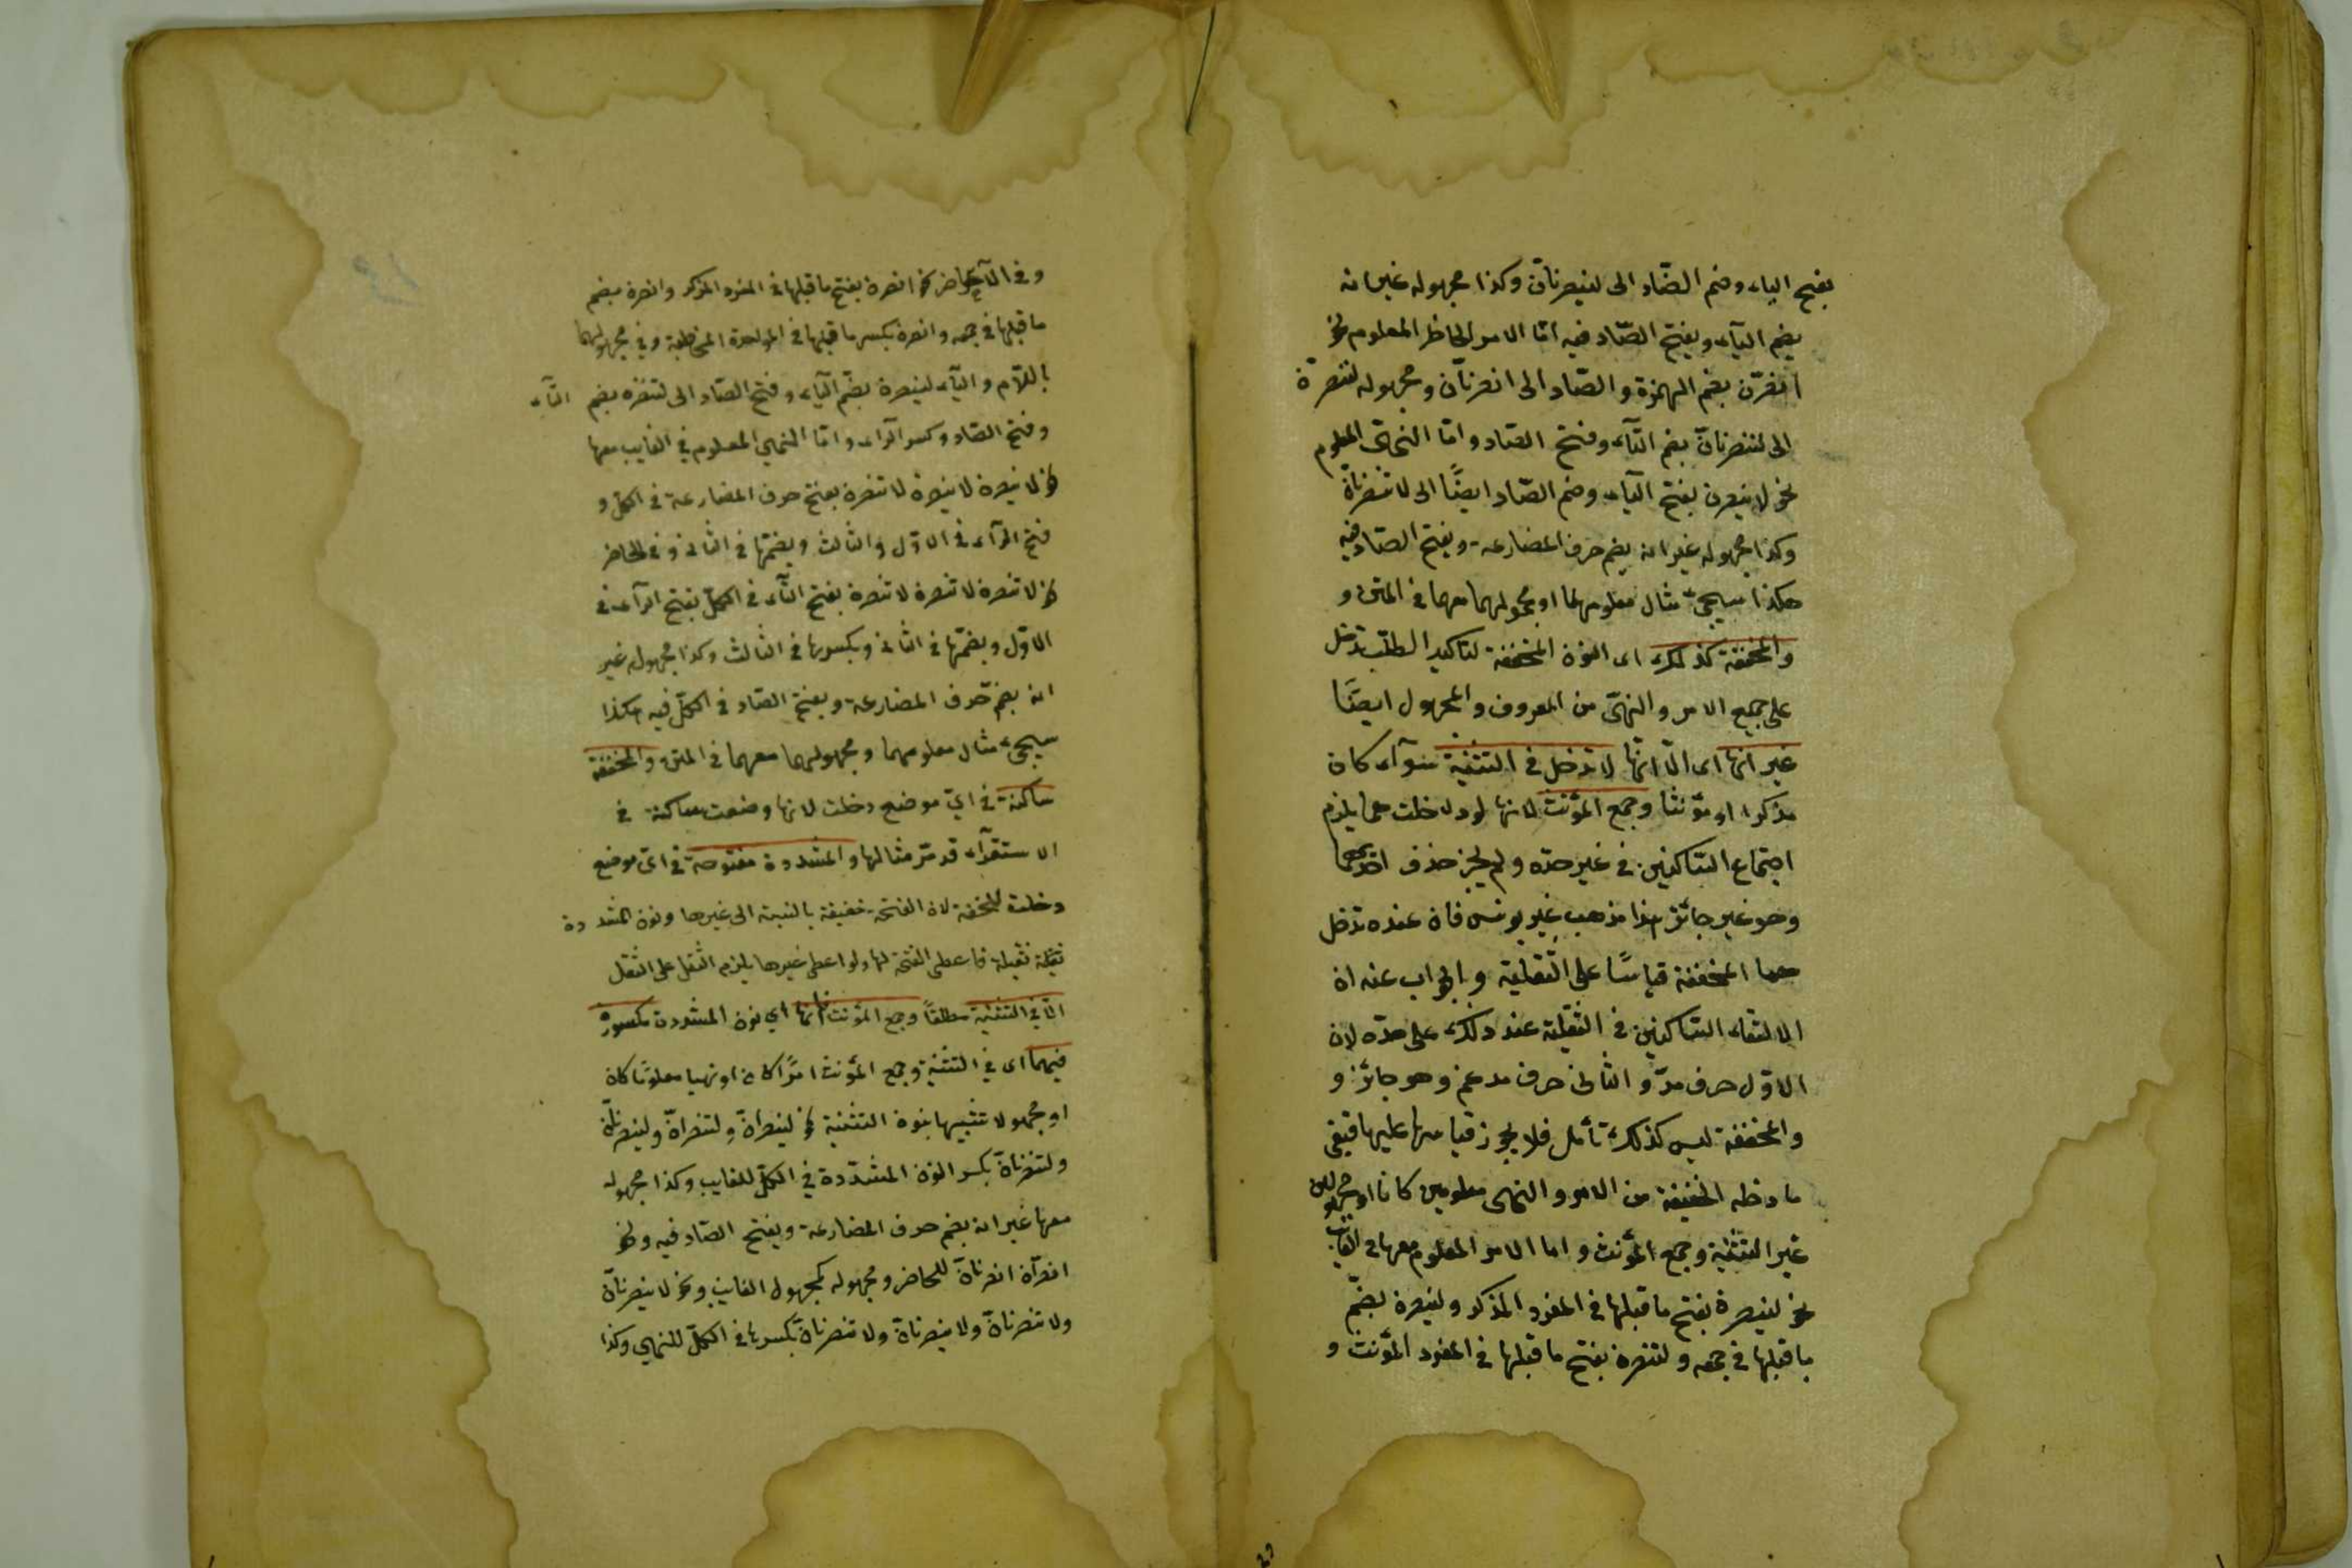 بفتح الياء وضم الصّاد الى لينصرنانّ وكذا مجهوله غير انه
بضم اليآء وبفتح الصّاد فيه امّا الامر الحاظر المعلوم نحو
انصرّن بضم الهمزة والصّاد الى انصرنانّ ومجهوله لتنصرنّ
الى لتنصرنانّ بضم التّآء وفتح الصّاد وامّا النهى المعلوم
نحو لا ينصرن بفتح اليآء وضم الصّاد ايضًا الى لا تنصرنانّ
وكذا مجهوله غير انه بضم حرف المضارعة وبفتح الصّاد فيه
هكذا سيجئ مثال معلومهما او مجهولهما معهما فى المتن و
والمخففة كذلك اى النون المخففة لتاكيد الطلب تدخل
على جميع الامر والنهّى من المعروف والمجهول ايضًا
غير انها اى الّا انّها لا تدخل فى التثنية سوآء كان
مذكرا او مؤنثا وجمع المؤنث لانها لو دخلت هما يلزم
اجتماع السّاكنين فى غير حدّه ولم يجز حذف احديهما
وهو غير جائز هذا مذهب غير يونس فان عنده تدخل
هما المخففة قياسًا على الثّقيلة والجواب عنه ان
الالتقاء السّاكنين فى الثقيلة عند ذلك على حدّه لان
الاوّل حرف مدّ والثانى حرف مدغم وهو جائز و
والمخففة ليس كذلك تأمل فلا يجوز قياسها عليها فبقى
ما دخله الخفيفة من الامر والنهى معلومين كانا او مجهولين
غير التثنية وجمع المؤنث واما الامر المعلوم معها فى الغائب
نحو لينصرن بفتح ما قبلها فى المفرد المذكر ولينصرن بضمّ
ما قبلها فى جمعه ولتنصرن بفتح ما قبلها فى المفرد المؤنث و
وفى الحاضر نحو انصرن بفتح ما قبلها فى المفرد المذكر وانصرن بضم
ما قبلها فى جمعه وانصرن بكسر ما قبلها فى الواحدة المخاطبة وفى مجهولهما
باللّام واليآء لينصرن بضّم اليآء وفتح الصّاد الى لتنصرن بضم التّآء
وفتح الصّاد وكسر الرّاء وامّا النهي المعلوم في الغايب معها
نحو لا ينصرن لا ينصرن لا تنصرن بفتح حرف المضارعة فى الكلّ و
فتح الرّآء فى الاوّل والثالث وبضمّها فى الثانى وفى الحاضر
نحو لا تنصرن لا تنصرن لا تنصرن بفتح التّآء فى الكلّ بفتح الرّآء فى
الاوّل وبضمّها فى الثانى وبكسرها فى الثالث وكذا مجهوله غير
انه بضم حرف المضارعة وبفتح الصّاد فى الكلّ فيه هكذا
سيجئ مثال معلومهما ومجهولهما معهما فى المتن والمخففة
ساكنة فى ايّ موضع دخلت لانها وضعت ساكنة فى
الاستقرآء قد مرّ مثالها والمشددة مفتوحة فى اىّ موضع
دخلت للخفة لان الفتحة خفيفة بالنسبة الى غيرها ونون المشددة
ثقيلة فاعطى الفتحة لها ولو اعطى غيرها يلزم الثقل على الثقل
الّا في التثنية مطلقًا وجمع المؤنث فانّها اي نون المشددة مكسورة
فيهما اى في التثنية وجمع المؤنث امرًا كان او نهيا معلومًا كان
او مجهولا تشبيها بنون التثنية نحو لينصرانّ ولتنصرانّ ولينصرنانّ
ولتنصرنانّ بكسر النون المشدّدة في الكلّ للغايب وكذا مجهوله
معها غير انه بضم حرف المضارعة وبفتح الصّاد فيه ونحو
انصرآنّ انصرنانّ للحاضر ومجهوله كمجهول الغايب ونحو لا ينصرنانّ
ولا تنصرنانّ ولا ينصرنانّ ولا تنصرنانّ بكسرها فى الكلّ للنهي وكذا